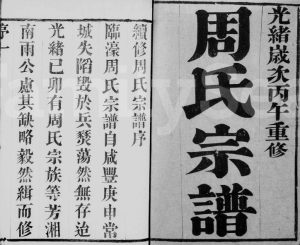 光緒歲次丙午重修
周氏宗譜
續修周氏宗譜序
臨濠周氏宗譜自咸豐庚申常
城失陷毀於兵燹蕩然無存迨
光緒己卯有周氏宗族等芳湘
南雨公慮其缺略毅然緝而修
序一